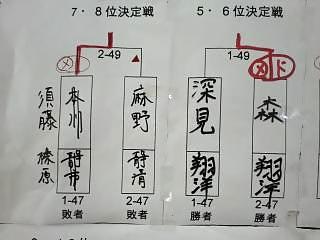 7・8位決定戦
5・6位決定戦
メ
2-49
1-49
メ
ド
須藤
本川
麻野
深見
森
榛原
静市
静清
翔洋
翔洋
1-47
敗者
2-47
敗者
1-47
勝者
2-47
勝者